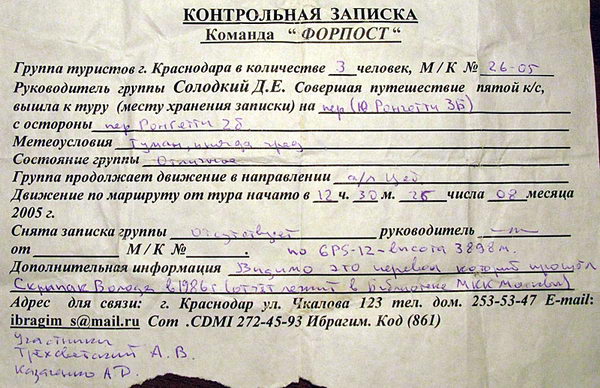 КОНТРОЛЬНАЯ ЗАПИСКА
Команда “ ФОРПОСТ “
Группа туристов г. Краснодара в количестве 3 человек, М / К № 26-05
Руководитель группы Солодкий Д.Е. Совершая путешествие пятой к/с,
вышла к туру (месту хранения записки) на пер (Ю Ронгетти 3Б)
с стороны пер Ронгетти 2б
Метеоусловия Туман, иногда град
Состояние группы Отличное
Группа продолжает движение в направлении а/л Цей
Движение по маршруту от тура начато в 12 ч. 30 м. 26 числа 08 месяца
2005 г.
Снята записка группы Отсутствует руководитель
от М / К № . по GPS-12 - высота 3898 м.
Дополнительная информация Видимо это перевал который прошёл
Скрипак Володя в 1986г (отчёт лежит в библиотеке МКК Москвы)
Адрес для связи: г. Краснодар ул. Чкалова 123 тел. дом. 253-53-47 E-mail:
ibragim_s@mail.ru Сот .CDMI 272-45-93 Ибрагим. Код (861)
Участники
Трехсветский А. В.
Казаченко А Д.